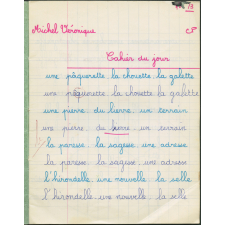 78
Michel Véronique
Cahier du jour
une pâquerette la chouette la galette
une pâquerette la chouette la galette
une pierre du lierre un terrain
une pierre du lierre un terrain
la paresse la sagesse une adresse
la paresse la sagesse une adresse
l'hirondelle une nouvelle la selle
l'hirondelle une nouvelle la selle